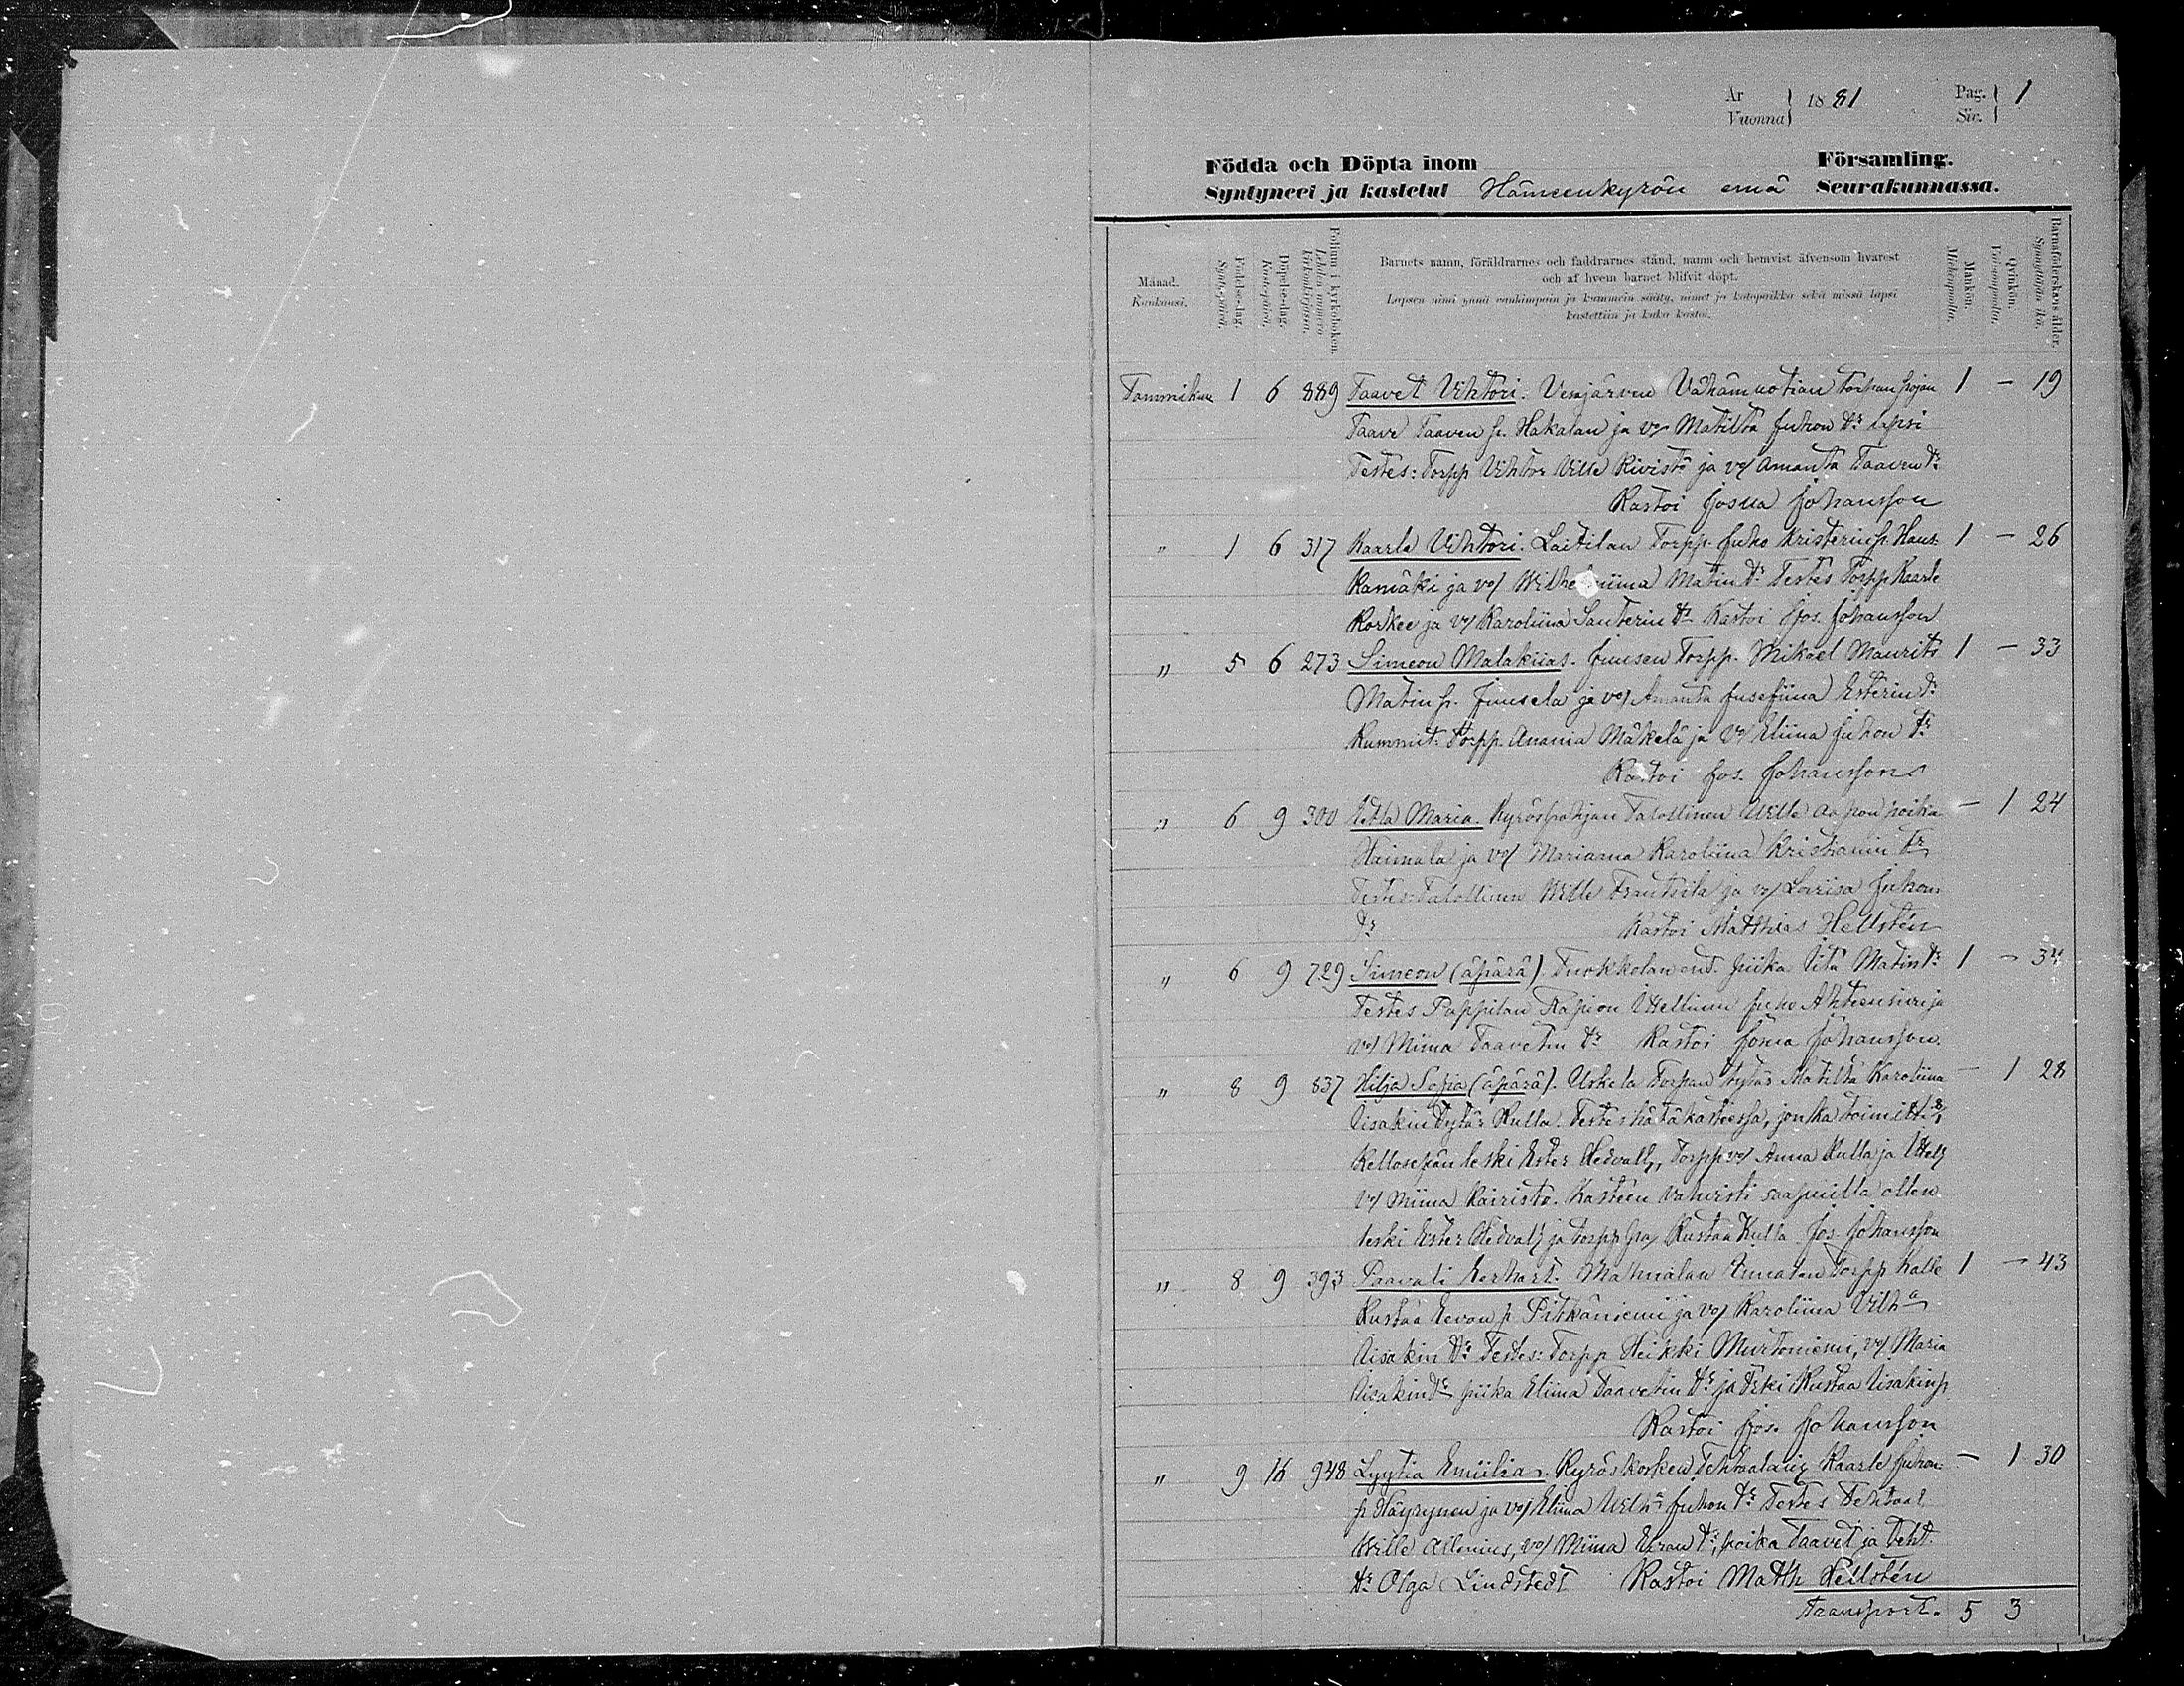 År } 1881 Pag. } 1
Vuonna } Siv. }
Födda och Döpta inom Församling.
Syntyneet ja kastetut Hämeenkyrön emä Seurakunnassa.
Månad. Kuukausi.
Födelsedag. Syntypäivä.
Döpelsedag. Kastepäivä.
Folium i kyrkoboken. Lehden numero kirkonkirjassa.
Barnets namn, föräldrarnes och faddrarnes stånd, namn och hemvist äfvensom hvarest
och af hvem barnet blifvit döpt.
Lapsen nimi ynnä vanhimpain ja kummein sääty, nimet ja kotopaikka sekä missä lapsi
kastettiin ja kuka kastoi.
Mankön. Miehenpuolta.
Qvinkön. Vaimonpuolta.
Barnaföderskans ålder. Synnyttäjän ikä.
Tammikuu 1 6 889 Taavet Vihtori. Vesajärven Vähämnotian torpan pojan 1 – 19
Taave Taaven p. Hakalan ja vo/ Matilta Juhon tr lapsi
Testes: Torpp Vihtor Ville Kivistö ja vo/ Amanta Taaven tr
Kastoi Josua Johansson
" 1 6 317 Kaarle Vihtori. Laitilan Torpp. Juho Kristerin p. Haus- 1 – 26
kamäki ja vo/ Wilhelmiina Matin tr Testes Torpp Kaarle
Korkee ja vo/ Karoliina Santerin tr Kastoi Jos. Johansson
" 5 6 273 Simeon Malakiias. Juusen Torpp. Mikael Maurits 1 – 33
Matin p. Juusela ja vo/ Amanta Jusefiina Esterin tr
Kummit: Torpp. Anania Mäkelä ja vo/ Eliina Juhon tr
Kastoi Jos. Johansson
" 6 9 300 Maria. Kyröspohjan Talollinen Ville Aapon poika – 1 24
Haimala ja vo/ Mariaana Karoliina Kristianin tr
Testes: Talollinen Wille Frantsila ja vo/ Loviisa Juhon
tr Kastoi Matthias Hellstén
" 6 9 729 Simeon (äpärä). Turkkolan ent. piika Iita Matin tr 1 – 34
Testes Pappilan Rapion Itsellinen Juho Ahteensivu ja
vo/ Miina Taavetin tr Kastoi Josua Johansson.
" 8 9 837 Hilja Sofia (äpärä). Uskela Torpan tytär Matilta Karoliina – 1 28
Iisakin tytär Kulla. Testes hätäkasteessa, jonka toimitti 8/1
Kellosepän leski Ester Hedvall, Torpp vo/ Anna Kulla ja Itsell
vo/ Miina Kairisto. Kasteen vahvisti saapuilla ollen
leski Ester Hedvall ja torpp Kustaa Kulla Jos. Johansson
" 8 9 393 Paavali Eerhart. Mahnalan Torpp Kalle 1 – 43
Kustaa Eevan p. Pitkäniemi ja vo/ Karoliina Vilh:a
Iisakin tr Testes: Torpp Heikki Murtoniemi, vo/ Maria
Iisakin tr piika Eliina Taavetin tr ja Kustaa Iisakin p
Kastoi Jos. Johansson
" 9 16 948 Lyytia Emiilia. Kyröskosken Tehtaalaisen Kaarle Juhon – 1 30
p Häyrynen ja vo/ Eliina Vilh:a Juhon tr Testes Tehtaal
Wille Allenius, vo/ Miina tr, poika Taavet ja Teht.
tr Olga Lindstedt Kastoi Matth Hellstén
Transport. 5 3